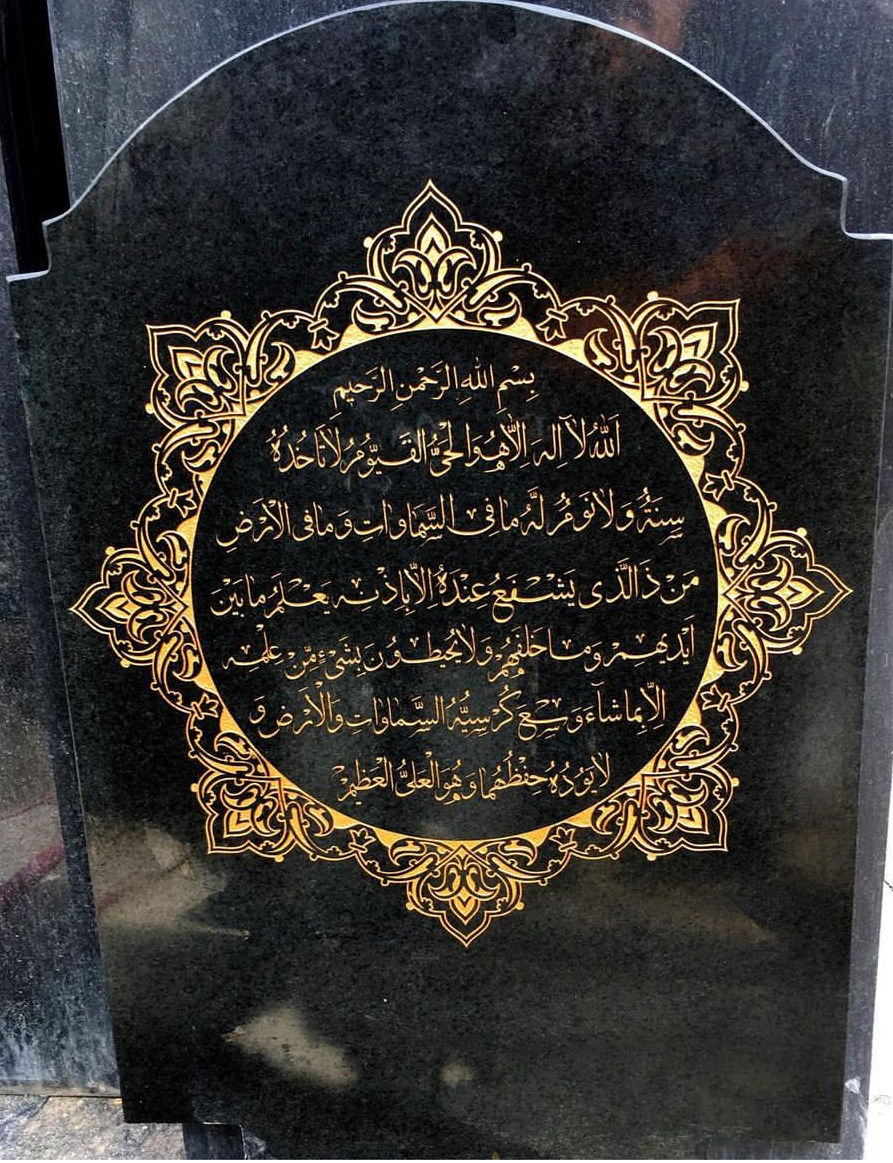 بِسْمِ اللهِ الرَّحْمٰنِ الرَّحِيمِ
اَللّٰهُ لَآ اِلٰهَ اِلَّا هُوَ الْحَىُّ الْقَيُّومُ لَا تَأخُذُهُ
سِنَةٌ وَلَا نَوْمٌ لَهُ مَا فِى السَّمَاوَاتِ وَمَا فِى الْاَرْضِ
مَنْ ذَا الَّذِى يَشْفَعُ عِنْدَهُ اِلَّا بِاِذْنِهِ يَعْلَمُ مَا بَيْنَ
اَيْدِيهِمْ وَمَا خَلْفَهُمْ وَلَا يُحِيطُونَ بِشَىْءٍ مِّنْ عِلْمِهِ
اِلَّا بِمَا شَاءَ وَسِعَ كُرْسِيُّهُ السَّمَاوَاتِ وَالْاَرْضَ وَ
لَا يَؤُدُهُ حِفْظُهُمَا وَهُوَ الْعَلِىُّ الْعَظِيمُ